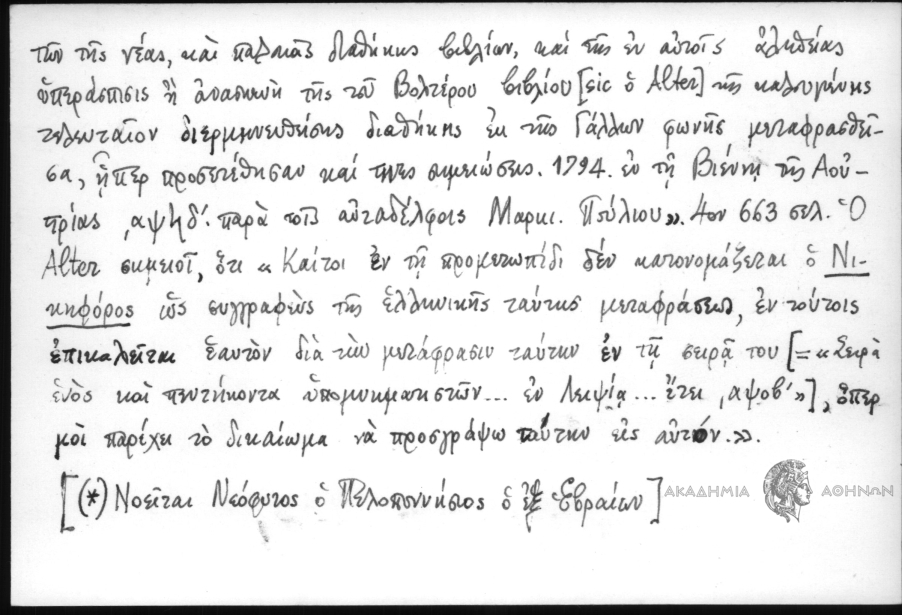 τῶν τῆς νέας, καὶ παλαιᾶς διαθήκης βιβλίων, καὶ τῆς ἐν αὐτοῖς ἀληθείας
ὑπεράσπισις ἢ ἀνασκευὴ τῆς τοῦ Βολτέρου βιβλίου [sic ὁ Alter] τῆς καλουμένης
τελευταῖον διερμηνευθείσης διαθήκης ἐκ τῆς Γάλλων φωνῆς μεταφρασθεῖ-
σα, ᾗπερ προσετέθησαν καί τινες σημειώσεις. 1794. ἐν τῇ Βιέννῃ τῆς Αου-
στρίας ͵αψϟδ´. παρὰ τοῖς αὐταδέλφοις Μαρκι. Πούλιου». 4ον 663 σελ. Ὁ
Alter σημειοῖ, ὅτι «Καίτοι ἐν τῇ προμετωπίδι δέν κατονομάζεται ὁ Νι-
κηφόρος ὡς συγγραφεὺς τῆς ἑλληνικῆς ταύτης μεταφράσεως, ἐν τούτοις
ἐπικαλεῖται ἑαυτὸν διὰ τὴν μετάφρασιν ταύτην ἐν τῇ σειρᾷ του [= «Σειρὰ
ἑνὸς καὶ πεντήκοντα ὑπομνηματιστῶν... ἐν Λειψίᾳ... ἔτει ͵αψοβ´»], ὅπερ
μοὶ παρέχει τὸ δικαίωμα νὰ προσγράψω ταύτην εἰς αὐτόν.».
[(*) Νοεῖται Νεόφυτος ὁ Πελοποννήσιος ὁ ἐξ Ἑβραίων]
ΑΚΑΔΗΜΙΑ ΑΘΗΝΩΝ